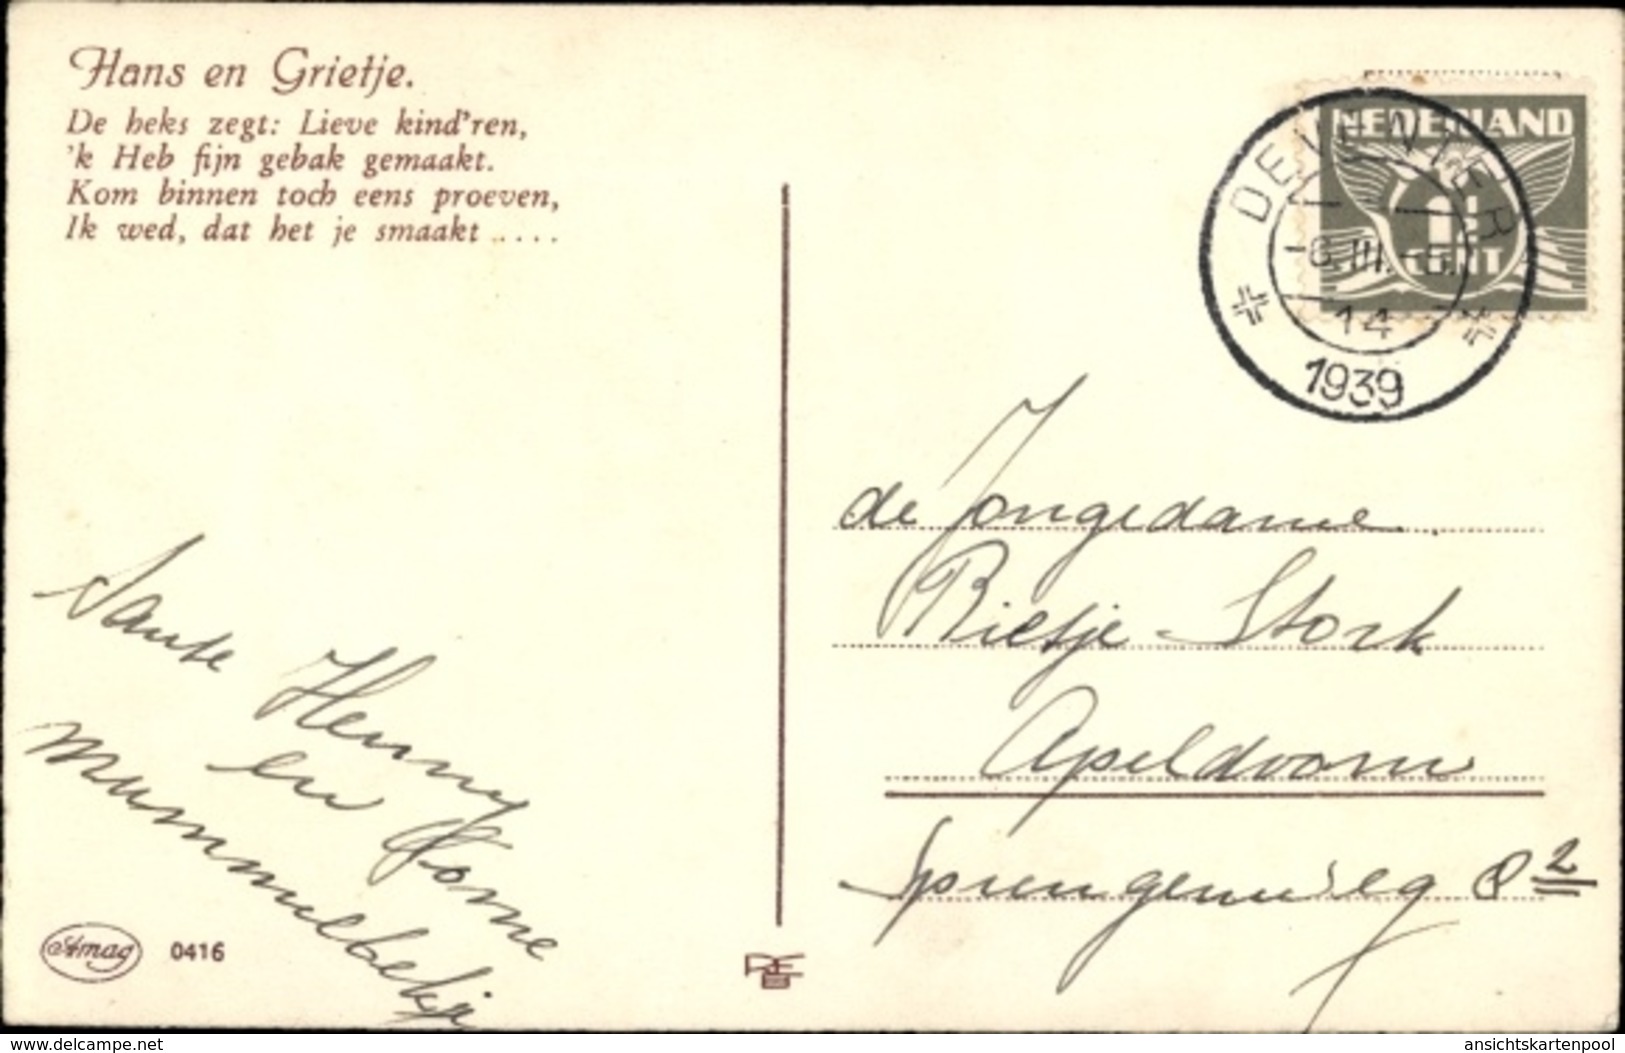 Hans en Grietje.
De heks zegt: Lieve kind'ren,
'k Heb fijn gebak gemaakt.
Kom binnen toch eens proeven,
Ik wed, dat het je smaakt ....
NEDERLAND
CENT
DEVENTER
-6.III.-6.
14
1939
de Jongedame
Rietje Stork
Apeldoorn
Sprengenweg 8 2
Tante Henny
en
Mummelbekje
Amag 0416
delcampe.net
ansichtskartenpool